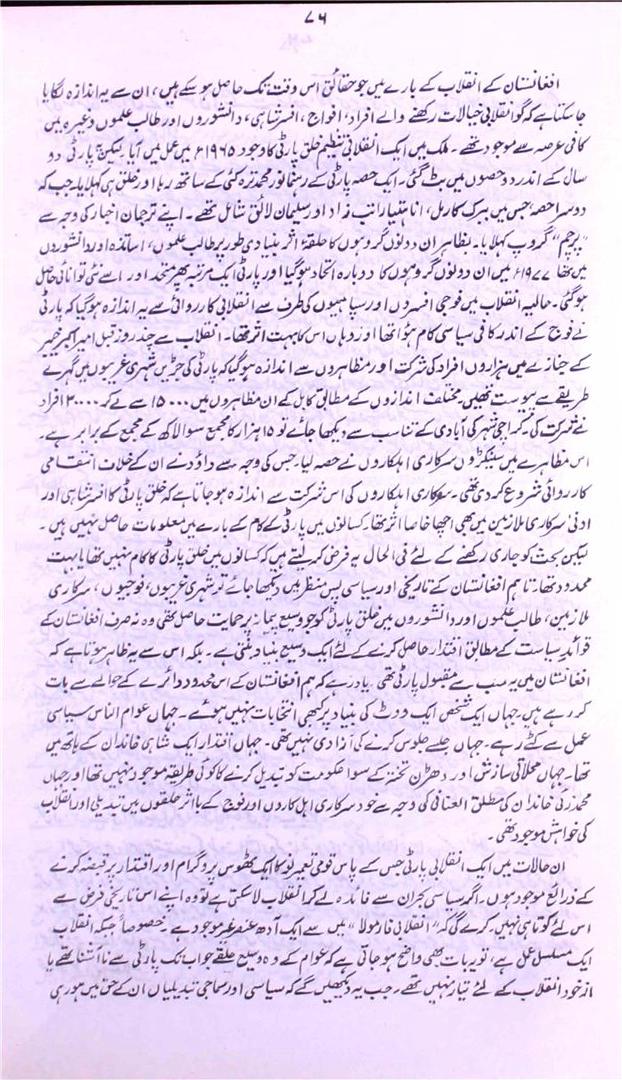 ۷۶
افغانستان کے انقلاب کے بارے میں جو حقائق اس وقت تک حاصل ہو سکے ہیں، ان سے یہ اندازہ لگایا
جا سکتا ہے کہ گو انقلابی خیالات رکھنے والے افراد، افواج، افسر شاہی، دانشوروں اور طالب علموں وغیرہ میں
کافی عرصہ سے موجود تھے۔ ملک میں ایک انقلابی تنظیم خلق پارٹی کا وجود ۱۹۶۵ء میں عمل میں آیا لیکن یہ پارٹی دو
سال کے اندر دو حصوں میں بٹ گئی۔ ایک حصہ پارٹی کے رہنما نور محمد ترہ کئی کے ساتھ رہا اور خلق ہی کہلایا۔ جب کہ
دوسرا حصہ جس میں ببرک کارمل، اناہیتا راتب زاد اور سلیمان لائق شامل تھے۔ اپنے ترجمان اخبار کی وجہ سے
"پرچم" گروپ کہلایا۔ بظاہر ان دونوں گروہوں کا حلقۂ اثر بنیادی طور پر طالب علموں، اساتذہ اور دانشوروں
میں تھا ۱۹۷۷ء میں ان دونوں گروہوں کا دوبارہ اتحاد ہو گیا اور پارٹی ایک مرتبہ پھر متحد اور اسے نئی توانائی حاصل
ہو گئی۔ حالیہ انقلاب میں فوجی افسروں اور سپاہیوں کی طرف سے انقلابی کارروائی سے یہ اندازہ ہو گیا کہ پارٹی
نے فوج کے اندر کافی سیاسی کام ہوا تھا اور وہاں اس کا بہت اثر تھا۔ انقلاب سے چند روز قبل امیر اکبر خیبر
کے جنازے میں ہزاروں افراد کی شرکت اور مظاہروں سے اندازہ ہو گیا کہ پارٹی کی جڑیں شہری غریبوں میں گہرے
طریقے سے پیوست تھیں۔ مختلف اندازوں کے مطابق کابل کے ان مظاہروں میں ۱۵۰۰۰ سے لے کر ۳۰۰۰۰ افراد
نے شرکت کی۔ کراچی شہر کی آبادی کے تناسب سے دیکھا جائے تو ۱۵ ہزار کا مجمع سوا لاکھ کے مجمع کے برابر ہے۔
اس مظاہرے میں سینکڑوں سرکاری اہلکاروں نے حصہ لیا۔ جس کی وجہ سے داؤد نے ان کے خلاف انتقامی
کارروائی شروع کر دی تھی۔ سرکاری اہلکاروں کی اس شرکت سے اندازہ ہو جاتا ہے کہ خلق پارٹی کا افسر شاہی اور
ادنی سرکاری ملازمین میں بھی اچھا خاصا اثر تھا۔ کسانوں میں پارٹی کے کام کے بارے میں معلومات حاصل نہیں ہیں۔
لیکن بحث کو جاری رکھنے کے لئے فی الحال یہ فرض کر لیتے ہیں کہ کسانوں میں خلق پارٹی کا کام نہیں تھا یا بہت
محدود تھا۔ تاہم افغانستان کے تاریخی اور سیاسی پس منظر میں دیکھا جائے تو شہری غریبوں، فوجیوں، سرکاری
ملازمین، طالب علموں اور دانشوروں میں خلق پارٹی کو جو وسیع پیمانہ پر حمایت حاصل تھی وہ نہ صرف افغانستان کے
قوائدِ سیاست کے مطابق اقتدار حاصل کرنے کے لئے ایک وسیع بنیاد بنتی ہے۔ بلکہ اس سے یہ ظاہر ہوتا ہے کہ
افغانستان میں یہ سب سے مقبول پارٹی تھی۔ یاد رہے کہ ہم افغانستان کے اس محدود دائرے کے حوالے سے بات
کر رہے ہیں۔ جہاں ایک شخص ایک ووٹ کی بنیاد پر کبھی انتخابات نہیں ہوئے۔ جہاں عوام الناس سیاسی
عمل سے کٹے رہے۔ جہاں جلسے جلوس کرنے کی آزادی نہیں تھی۔ جہاں اقتدار ایک شاہی خاندان کے ہاتھ میں
تھا۔ جہاں محلاتی سازش اور دھڑن تختہ کے سوا حکومت کو تبدیل کرنے کا کوئی طریقہ موجود نہیں تھا اور جہاں
محمد زئی خاندان کی مطلق العنانی کی وجہ سے خود سرکاری اہل کاروں اور فوج کے با اثر حلقوں میں تبدیلی اور انقلاب
کی خواہش موجود تھی۔
ان حالات میں ایک انقلابی پارٹی جس کے پاس قومی تعمیر نو کا ایک ٹھوس پروگرام اور اقتدار پر قبضہ کرنے
کے ذرائع موجود ہوں۔ اگر سیاسی بحران سے فائدہ لے کر انقلاب لا سکتی ہے تو وہ اپنے اس تاریخی فرض سے
اس لئے کوتاہی نہیں کرے گی کہ "انقلابی فارمولا" میں سے ایک آدھ عنصر غیر موجود ہے۔ خصوصاً جبکہ انقلاب
ایک مسلسل عمل ہے، تو یہ بات بھی واضح ہو جاتی ہے کہ عوام کے وہ وسیع حلقے جو اب تک پارٹی سے ناآشنا تھے یا
از خود انقلاب کے لئے تیار نہیں تھے۔ جب یہ دیکھیں گے کہ سیاسی اور سماجی تبدیلیاں ان کے حق میں ہو رہی